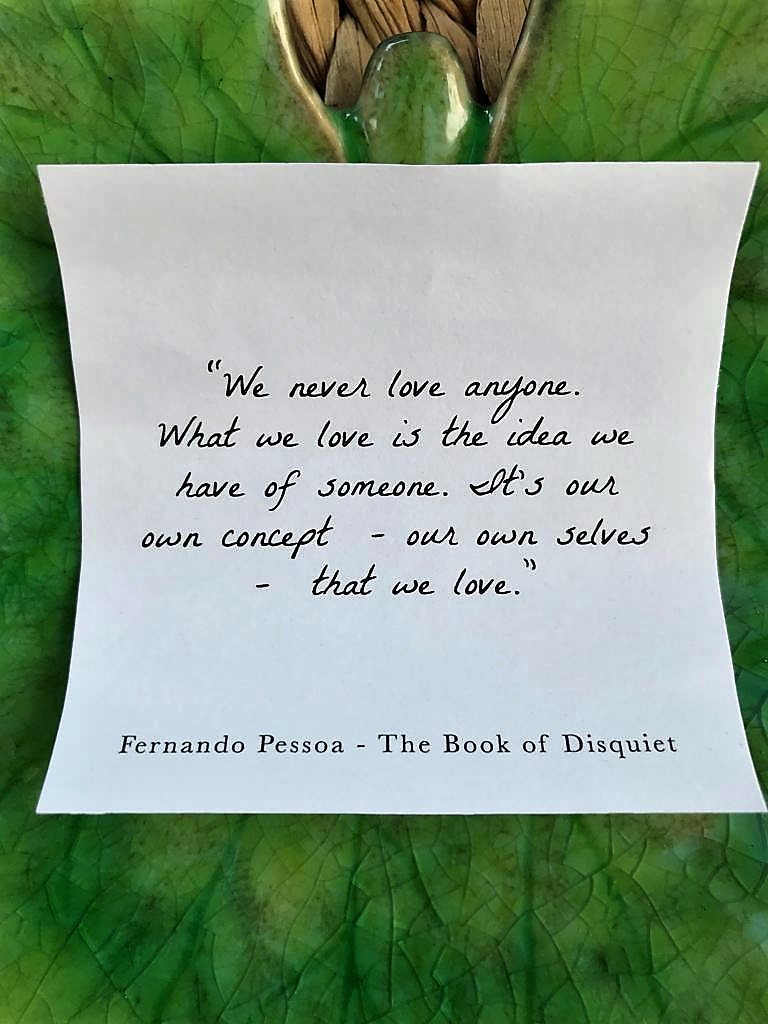 “We never love anyone.
What we love is the idea we
have of someone. It's our
own concept - our own selves
- that we love.”
Fernando Pessoa - The Book of Disquiet